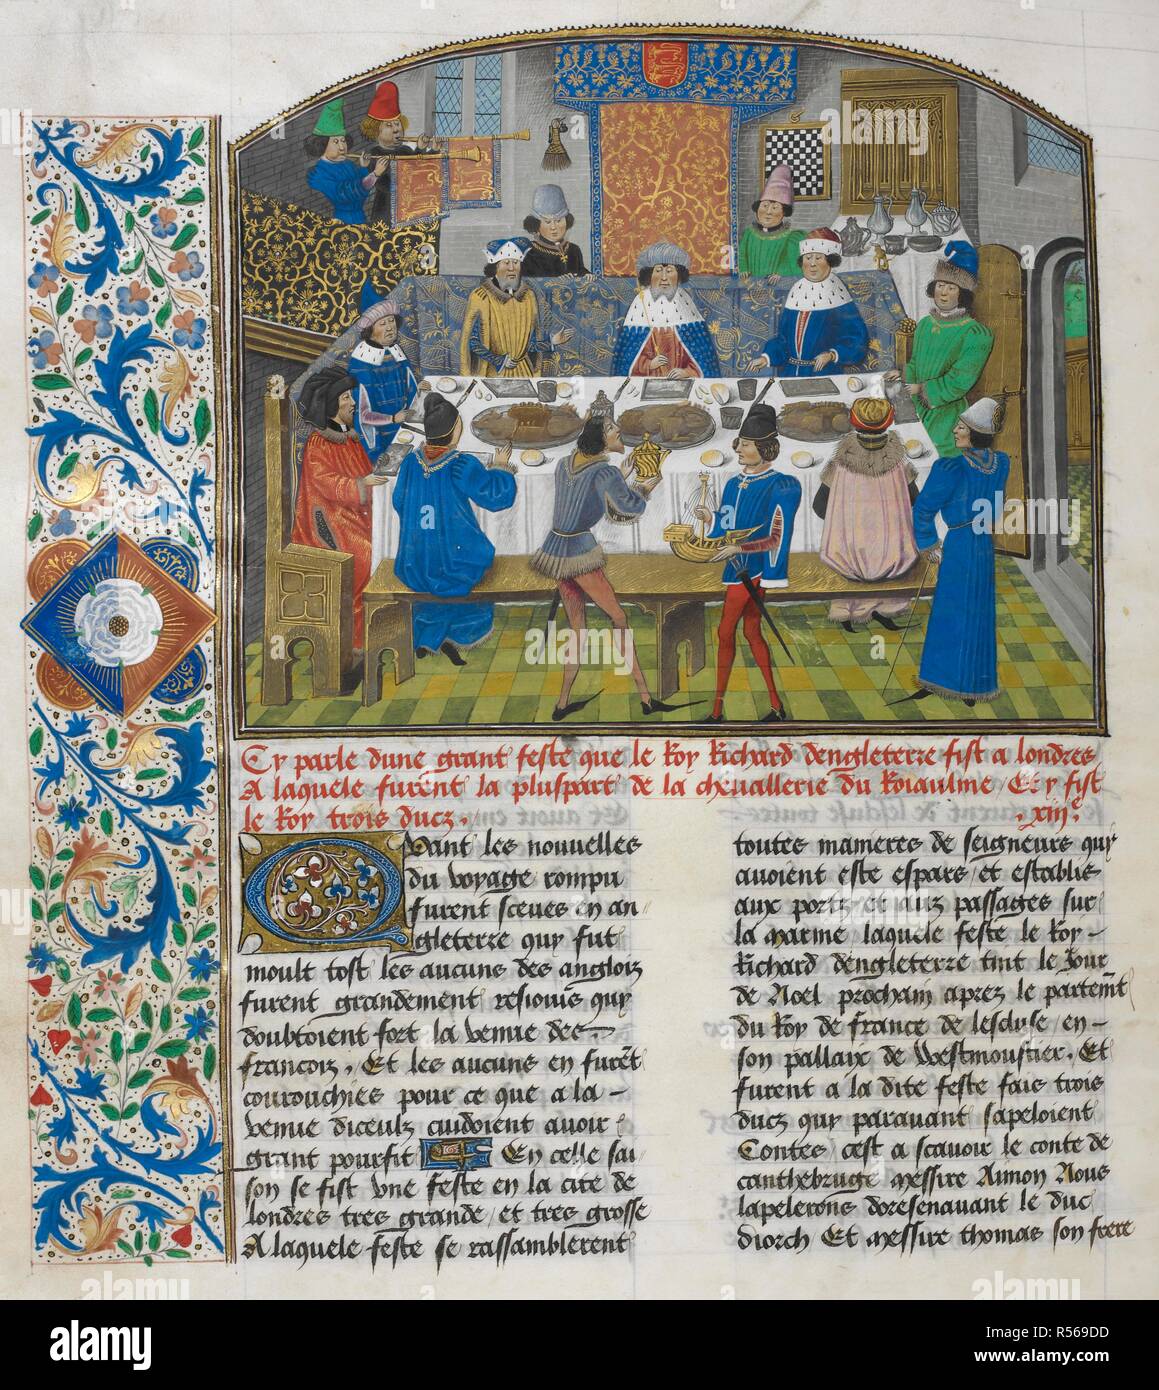 Cy parle dune grant feste que le Roy Richard dengleterre fist a londres
A laquele furent la pluspart de la chevallerie du Roiaulme / Et y fist
le Roy trois ducz . .xiii.e
Quant les nouvelles
du voyage rompu
furent sceues en an
gleterre quy fut
moult tost les aucuns des anglois
furent grandement resiouis quy
doubtoient fort la venue des
francois . Et les aucuns en furent
courouchies pour ce que a la
venue diceulz cuidoient avoir
grant pourfit En celle sai
son se fist une feste en la cite de
londres tres grande / et tres grosse
A laquele feste se rassamblerent
toutes manieres de seigneurs quy
avoient este espars / et establis
aux portz et auz passages sur
la marine laquele feste le Roy
Richard dengleterre tint le Jour
de Noel prochain aprez le partemt
du Roy de france de lescluse / en
son pallaix de Westmoustier . Et
furent a la dite feste fais trois
ducz quy paravant sapeloient
Contes / cest a scavoir le conte de
canthebruge messire Aimon Nous
lapelerons doresenavant le duc
diorch / Et messire thomas son frere
alamy
Image ID: R569DD
www.alamy.com